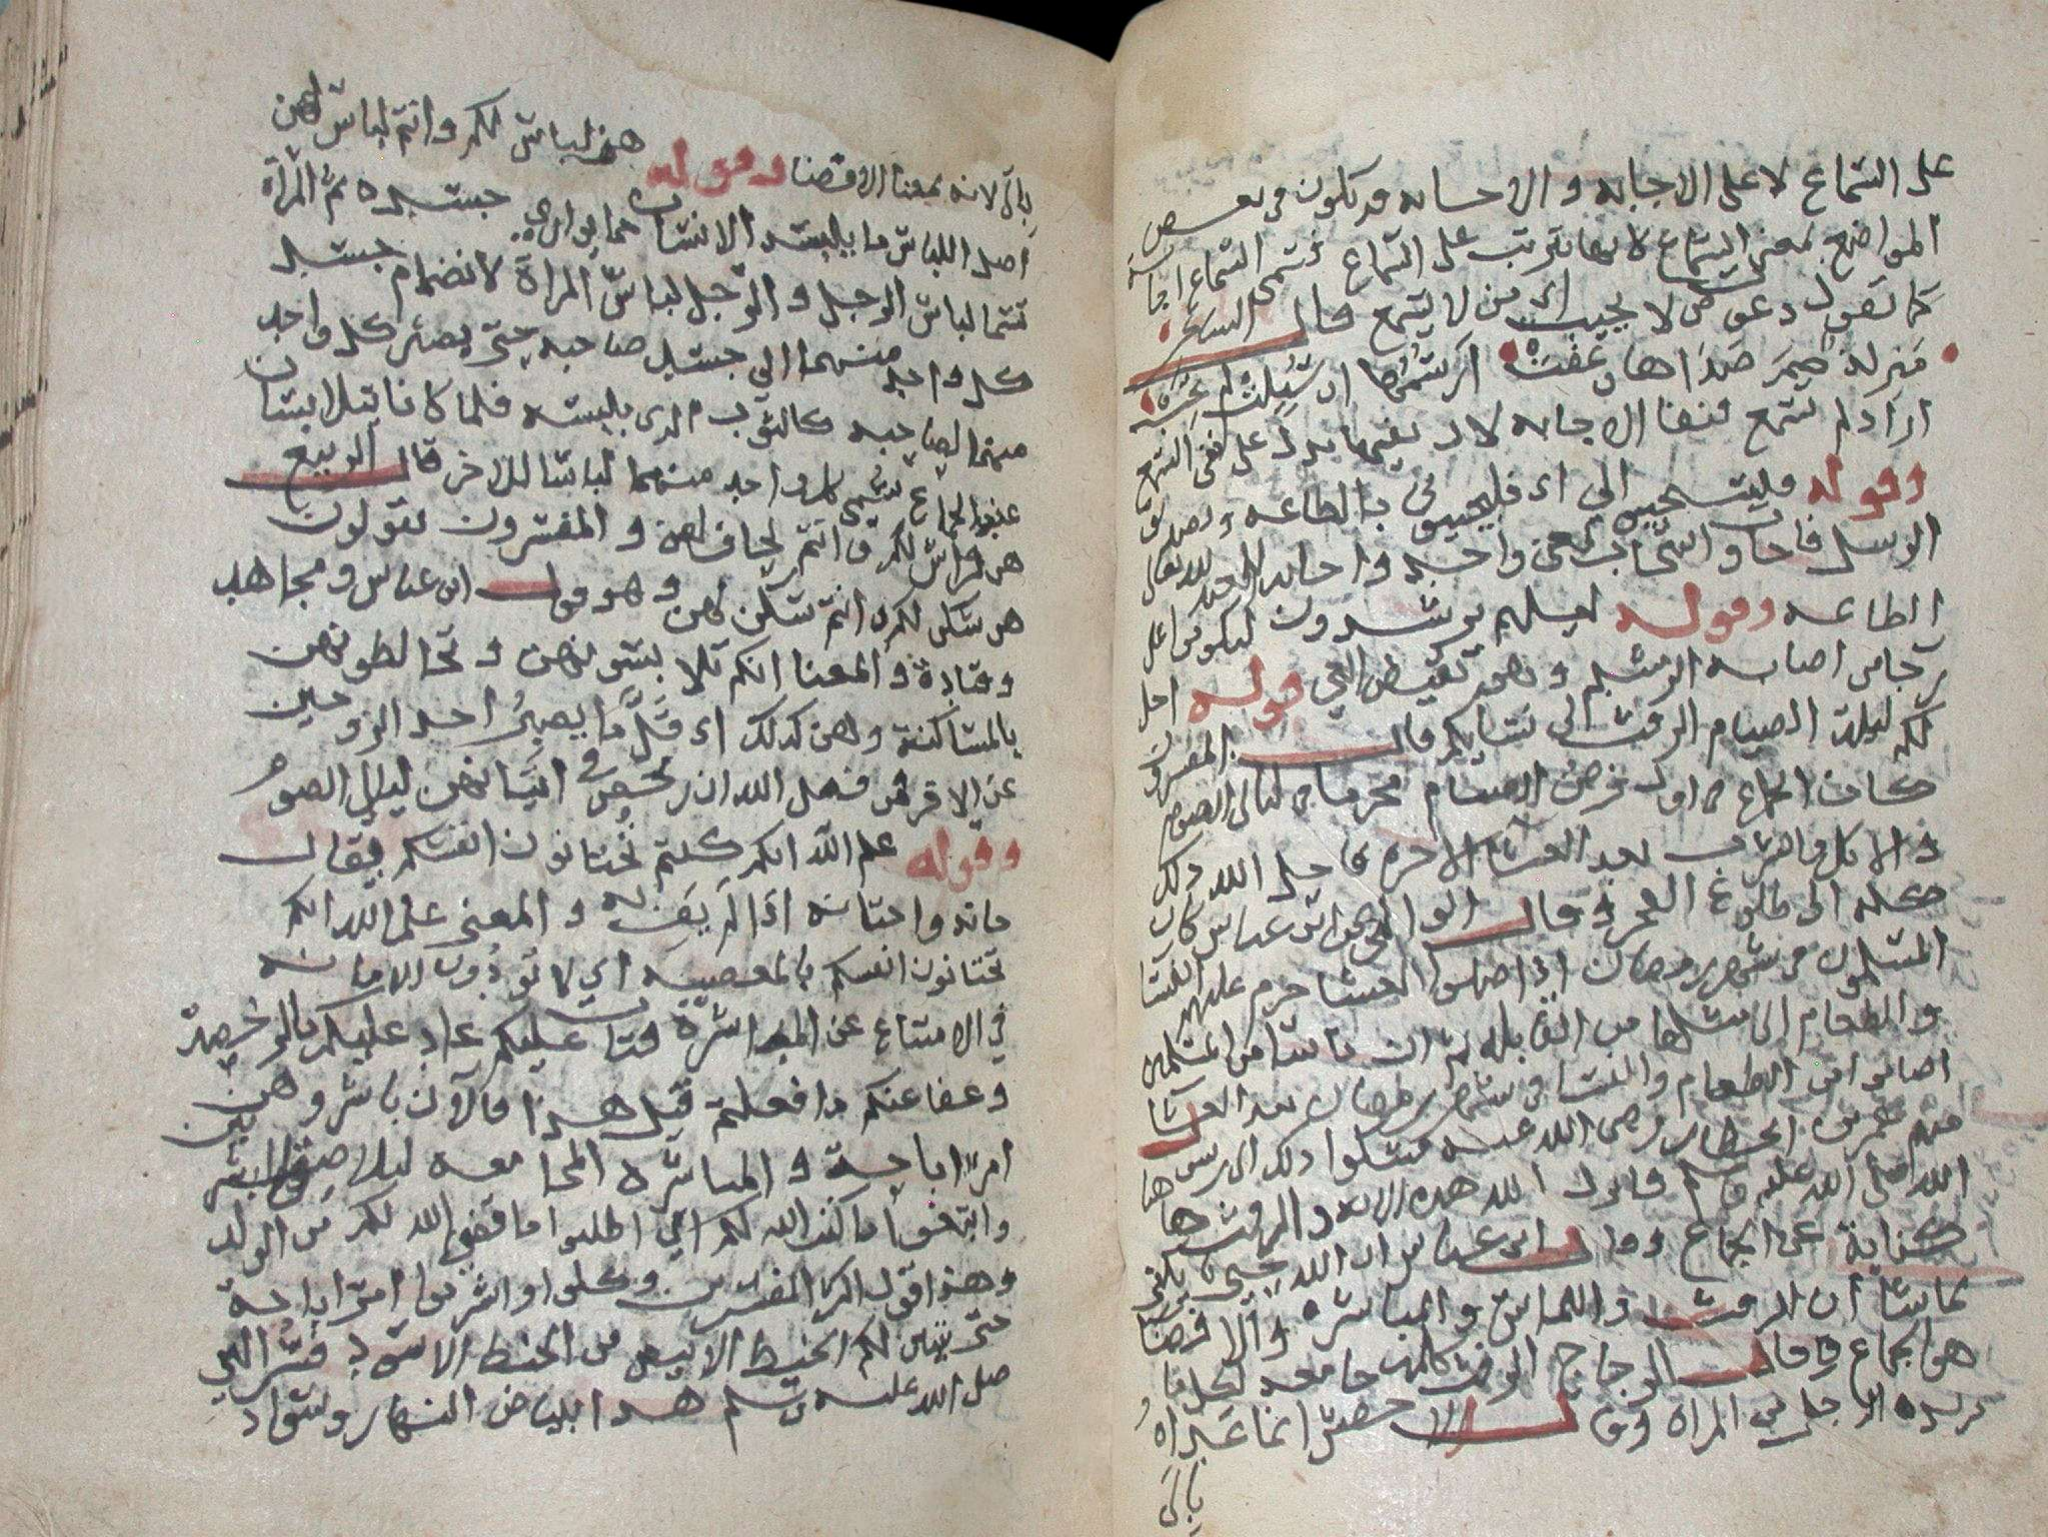 على السماع لا على الاجابه والاحسابه وتكون في بعض
المواضع بمعنى السماع لانها تترتب على السماع فتسمى السماع اجابة
كما تقول دعوت من لا يجيب اي من لا يسمع قال الشاعر
منزلة صم صداها وعفت ارسمها ان سُئلت لم تجب
اراد لم تسمع فنفا الاجابه لان نفيها يدل على نفي السمع
وقوله فليستجيبوا لي اي فليجيبوني بالطاعه وتصديق
الرسل فاجاب واستجاب بمعنى واحد واجابه العبد لله تعالى
الطاعه وقوله لعلهم يرشدون ليكونوا على
رجاء من اصابه الرشد وهو نقيض الغي قوله احل
لكم ليلة الصيام الرفث الى نسايكم قال المفسرون
كان الجماع في اول فرض الصيام محرما في ليالي الصوم
والاكل والشرب بعد العشاء الاخره فاحل الله ذلك
كله الى طلوع الفجر وقال الوالبي عن ابن عباس كان
المسلمون في شهر رمضان اذا صلوا العشا حرم عليهم النسا
والطعام الى مثلها من القابله ثم ان ناسا من المسلمين
اصابوا من الطعام والنسا في شهر رمضان بعد العشا
منهم عمر بن الخطاب رضي الله عنه فشكوا ذلك الى رسول
الله صلى الله عليه وسلم فانزل الله هذه الايه والرفث هاهنا
كناية عن الجماع وقال ابن عباس ان الله حيي كريم يكني
بما شا ان الرفث واللماس والمباشره والافضا
هو الجماع وقال الزجاج الرفث كلمه جامعه لكل ما
يريده الرجل من المراة وقال الاخفش انما عَدّاهُ
بإلى
بإلى لانه بمعنا الافضا وقوله هن لباس لكم وانتم لباس لهن
اصل اللباس ما يلبسه الانسان مما يواري جسده ثم المرأة
تسما لباس الرجل والرجل لباس المراة لانضمام جسد
كل واحد منهما الى جسد صاحبه حتى يصير كل واحد
منهما لصاحبه كالثوب الذي يلبسه فلما كانا يتلابسان
عند الجماع سُمي كل واحد منهما لباسا للاخر قال الربيع
هن فراش لكم وانتم لحاف لهن والمفسرون يقولون
هن سكن لكم وانتم سكن لهن وهو قول ابن عباس ومجاهد
وقتادة والمعنا انكم تلابسونهن وتخالطونهن
بالمساكنة وهن كذلك اي قلَّ ما يصبرُ احد الزوجين
عن الاخر فمن فضل الله ان رخص في اتيانهن ليالي الصوم
وقوله علم الله انكم كنتم تختانون انفسكم يقال
خانه واختانه اذا لم يَفِ له والمعنى علم الله انكم
تختانون انفسكم بالمعصيه اي لا تؤدون الامانه
في الامتناع عن المباشرة فتاب عليكم عاد عليكم بالرخصة
وعفا عنكم ما فعلتم قبل هذا فالآن باشروهن
امر اباحة والمباشره المجامعه لتلاصق البشرتين
وابتغوا ما كتب الله لكم اي اطلبوا ما قضى الله لكم من الولد
وهذا قول اكثر المفسرين وكلوا واشربوا امر اباحة
حتى يتبين لكم الخيط الابيض من الخيط الاسود فسّر النبي
صلى الله عليه وسلم هذا ببياض النهار وسواد